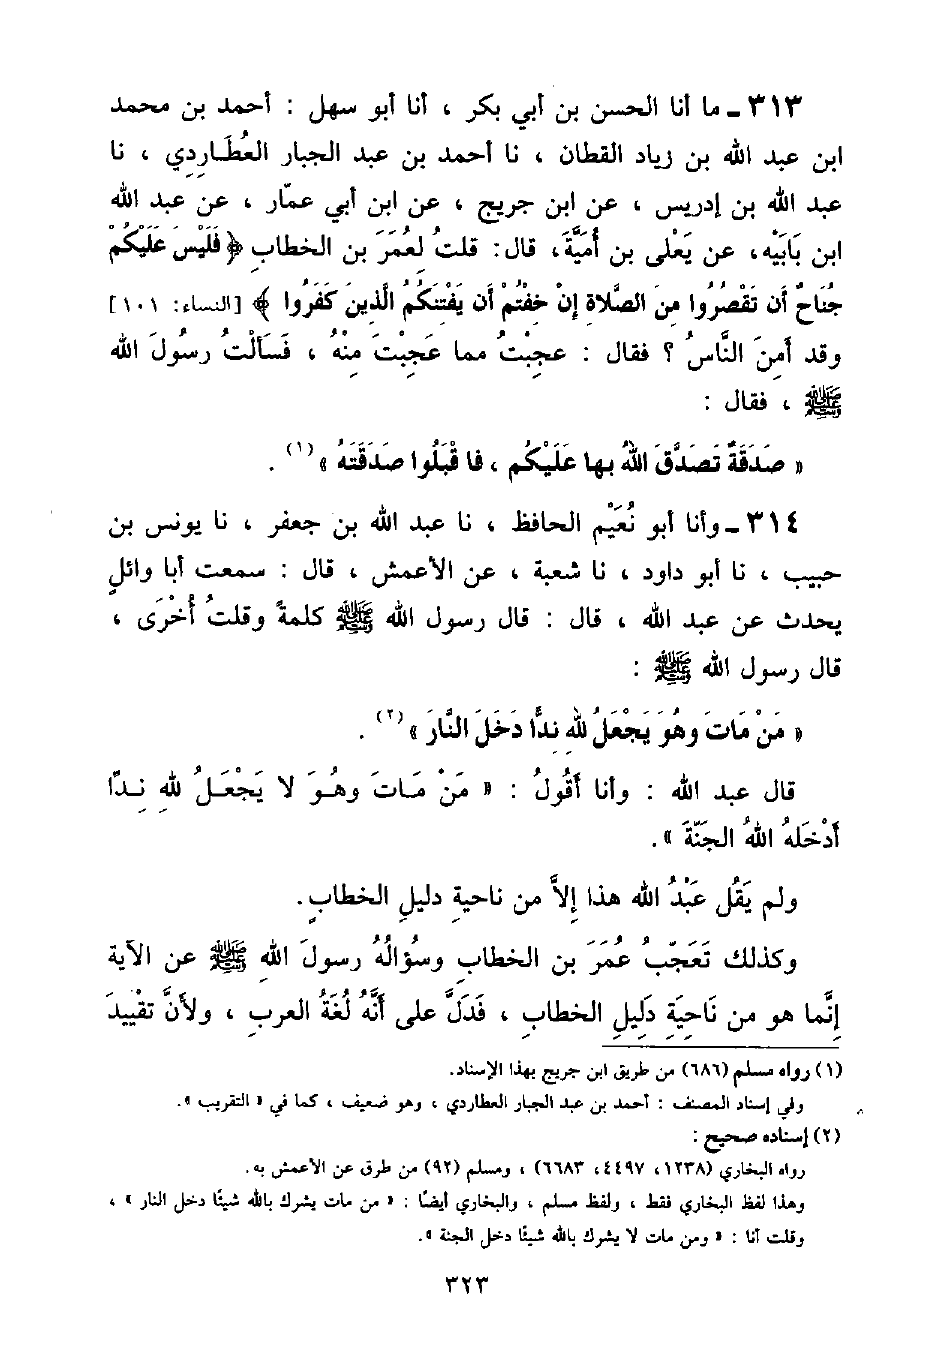 ٣١٣ ـ ما أنا الحسن بن أبي بكر ، أنا أبو سهل : أحمد بن محمد
ابن عبد الله بن زياد القطان ، نا أحمد بن عبد الجبار العُطَاردِي ، نا
عبد الله بن إدريس ، عن ابن جريج ، عن ابن أبي عمّار ، عن عبد الله
ابن بَابَيْه، عن يَعْلى بن أُمَيَّةَ، قال: قلتُ لعُمَرَ بن الخطابِ ﴿ فَلَيْسَ عَلَيْكُمْ
جُنَاحٌ أن تَقْصُرُوا مِنَ الصَّلاةِ إنْ خِفْتُمْ أن يَفْتِنَكُمُ الَّذِينَ كَفَرُوا ﴾ [النساء: ١٠١]
وقد أَمِنَ النَّاسُ ؟ فقال : عجِبْتُ مما عَجِبْتَ مِنْهُ ، فَسَأَلْتُ رسُولَ الله
ﷺ ، فقال :
« صَدَقَةٌ تَصَدَّقَ اللهُ بِها عَلَيْكُم ، فا قْبَلُوا صَدَقَتَهُ »(١) .
٣١٤ ـ وأنا أبو نُعَيْم الحافظ ، نا عبد الله بن جعفر ، نا يونس بن
حبيب ، نا أبو داود ، نا شعبة ، عن الأعمش ، قال : سمعت أبا وائلٍ
يحدث عن عبد الله ، قال : قال رسول الله ﷺ كلمةً وقلتُ أُخْرَى ،
قال رسول الله ﷺ :
« مَنْ مَاتَ وهُوَ يَجْعَلُ للهِ نِدًّا دَخَلَ النَّارَ »(٢) .
قال عبد الله : وأنا أقُولُ : « مَنْ مَاتَ وهُوَ لا يَجْعَلُ للهِ نِدًّا
أدْخَلَهُ اللهُ الجَنَّةَ ».
ولم يَقُل عَبْدُ الله هذا إلاَّ من ناحيةِ دليلِ الخطابِ.
وكذلك تَعَجّبُ عُمَرَ بن الخطابِ وسُؤالُهُ رسولَ اللهِ ﷺ عن الآيةِ
إنَّما هو من نَاحِيَةِ دَلِيلِ الخطابِ ، فَدَلَّ على أنَّهُ لُغَةُ العربِ ، ولأنَّ تقْييدَ
(١) رواه مسلم (٦٨٦) من طريق ابن جريج بهذا الإسناد.
وفي إسناد المصنف : أحمد بن عبد الجبار العطاردي ، وهو ضعيف ، كما في « التقريب ».
(٢) إسناده صحيح :
رواه البخاري (١٢٣٨، ٤٤٩٧، ٦٦٨٣) ، ومسلم (٩٢) من طرق عن الأعمش به.
وهذا لفظ البخاري فقط ، ولفظ مسلم ، والبخاري أيضًا : « من مات يشرك بالله شيئًا دخل النار » ،
وقلت أنا : « ومن مات لا يشرك بالله شيئًا دخل الجنة ».
٣٢٣